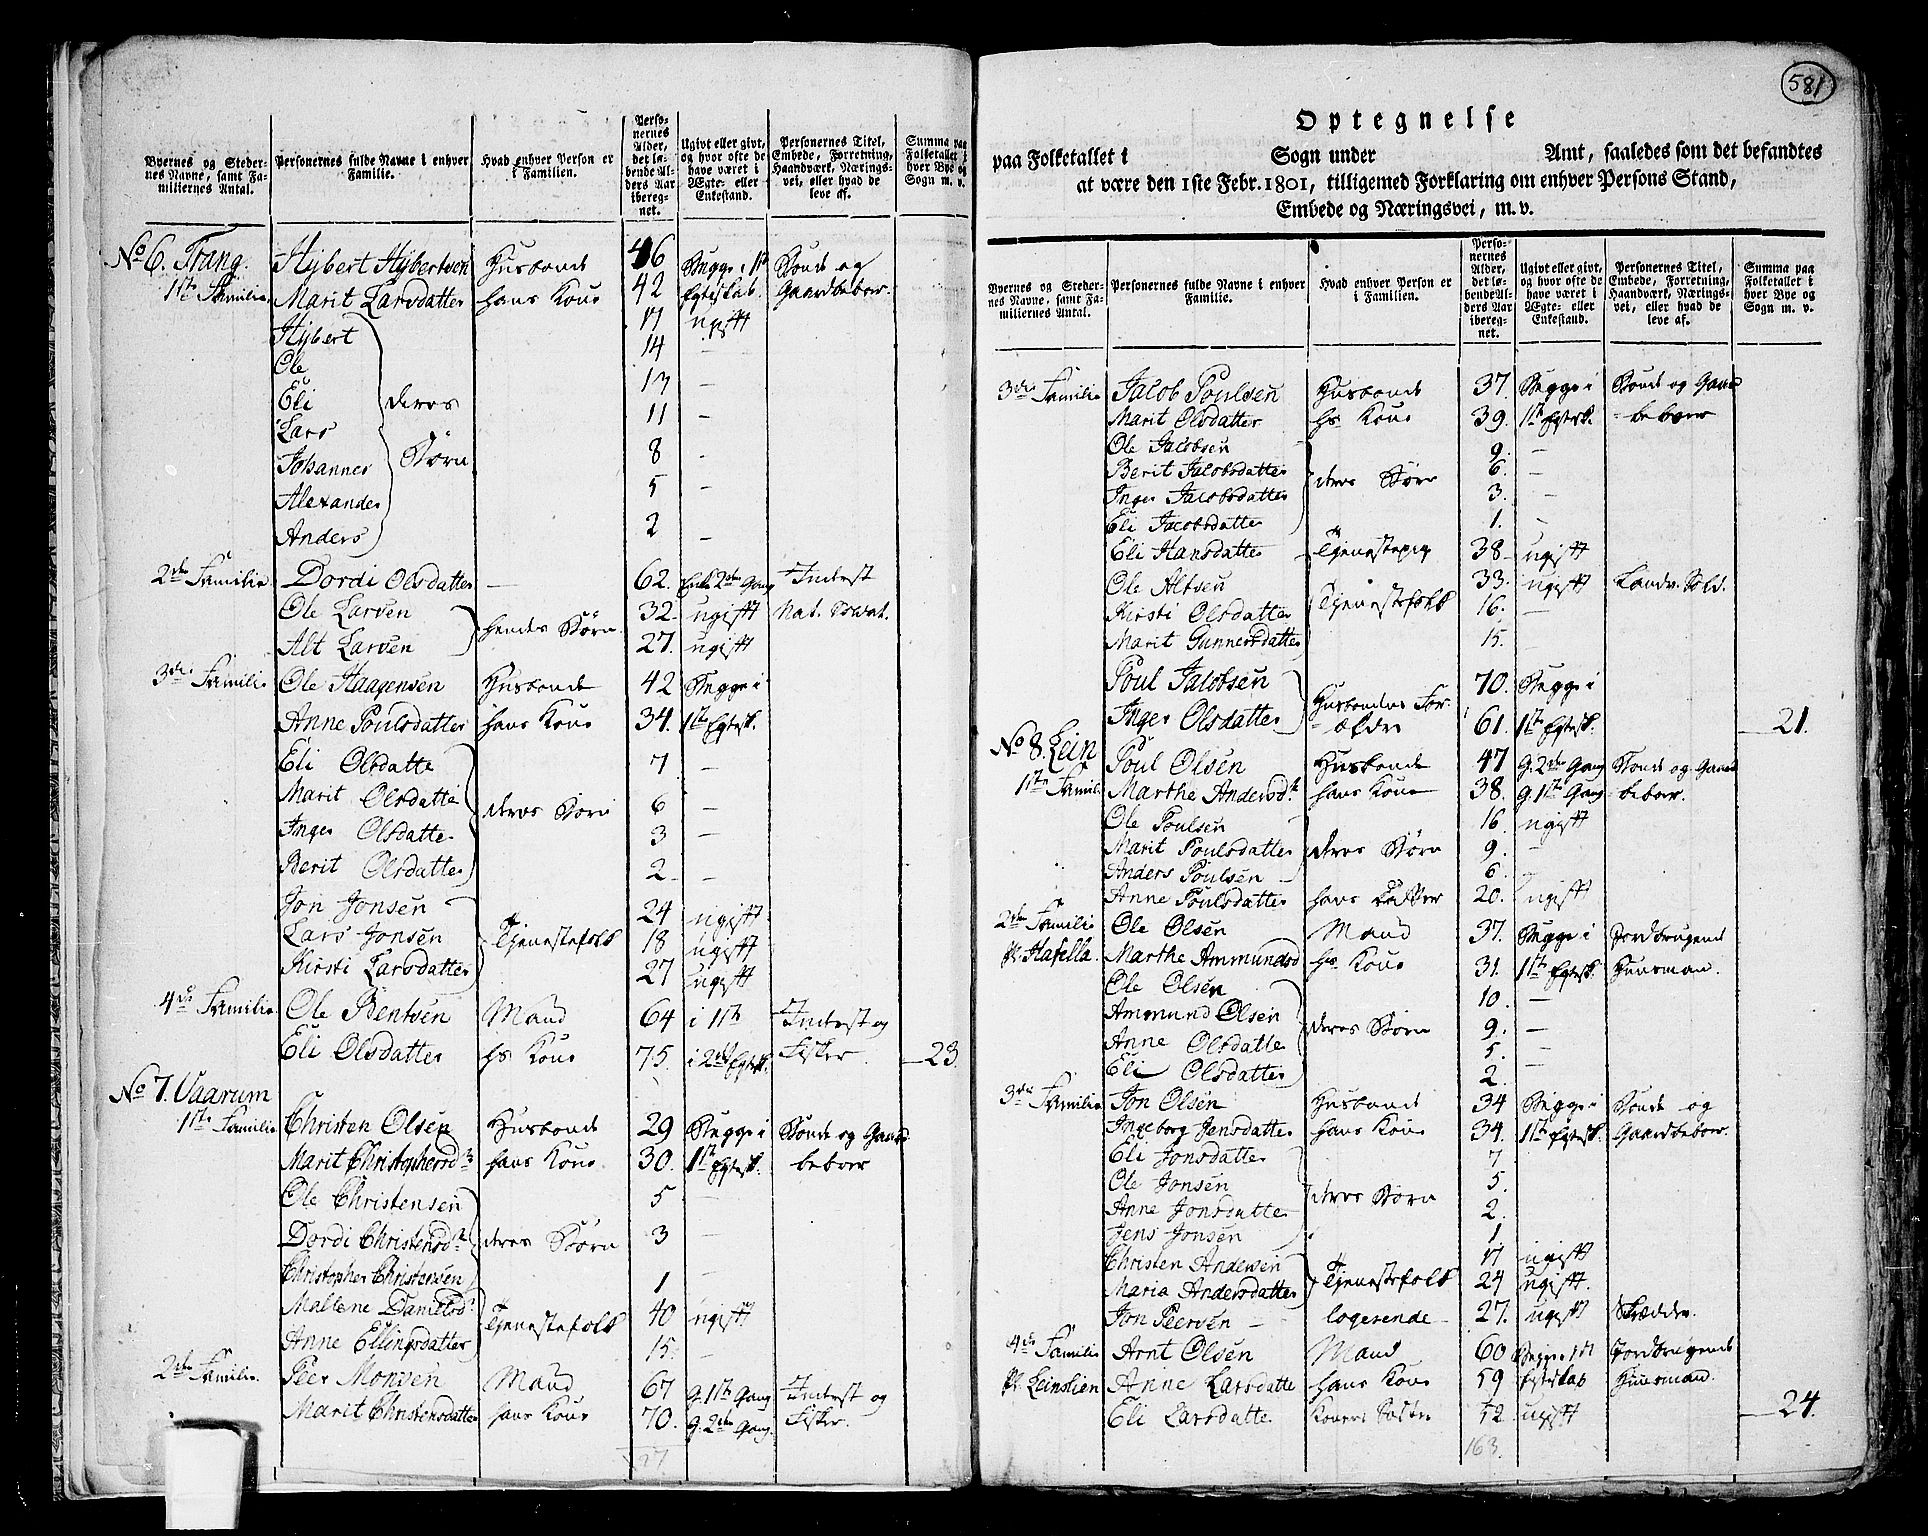 Byernes og Steder-
nes Navne, samt Fa-
miliernes Antal.
Personernes fulde Navne i enhver
Familie.
Hvad enhver Person er
i Familien.
Perso-
nernes
Alder,
det lø-
bende Al-
ders Aar
ibereg-
net.
Ugivt eller givt,
og hvor ofte de
have været i
Ægte- eller
Enkestand.
Personernes Titel,
Embede, Forretning,
Haandværk, Nærings-
vei, eller hvad de
leve af.
Summa paa
Folketallet i
hver Bye og
Sogn m. v.
No 6. Trang. Hybert Hybertsen Husbonde 46 Begge i 1te Bonde og
1ste Familie Marit Larsdatter hans Kone 42 Egteskab. Gaardbeboer.
Hybert 17 ugift
Ole 14 —
Eli deres 13 —
Lars Børn 11 —
Johannes 8 -
Alexander 5 —
Anders 2 —
2den Familie. Dordi Olsdatter — 62. Enke 2den Gang Inderst
Ole Larsen hendes Børn. 32. ugift Nat. Soldat.
Alt Larsen 27. ugift
3die Familie Ole Haagensen Husbonde 42 Begge i
Anne Poulsdatter hans Kone 34. 1ste Egtesk.
Eli Olsdatte 7 —
Marit Olsdatte deres Børn 6 —
Inger Olsdatte 3 —
Berit Olsdatte 2 —
Jon Jonsen 24 ugift
Lars Jonsen Tjenestefolk 18 ugift
Kirsti Larsdatter 27 ugift
4de Familie Ole Bentsen Mand 64 i 1ste Inderst og
Eli Olsdatter hs Kone 75. i 2det Egtesk. Fisker. 23.
No 7. Vaarum
1ste Familie Christen Olsen Husbonde 29 Begge i Bonde og Gaard-
Marit Christophersdtr hans Kone. 30. 1ste Egtesk. beboer
Ole Christensen 5 —
Dordi Christensdtr deres Børn 3 —
Christopher Christensen 1 —
Mallene Danielsdr Tjenestefolk 40 ugift
Anne Ellingsdatter 15. —
2den Familie. Peer Monsen Mand 67 g. 1ste Gang Inderst og
Marit Christensdatter hans Kone 70. g. 2den Gang. Fisker.
581
Optegnelse
paa Folketallet i Sogn under Amt, saaledes som det befandtes
at være den 1ste Febr. 1801, tilligemed Forklaring om enhver Persons Stand,
Embede og Næringsvei, m. v.
Byernes og Steder-
nes Navne, samt Fa-
miliernes Antal.
Personernes fulde Navne i enhver
Familie.
Hvad enhver Person er
i Familien.
Perso-
nernes
Alder,
det lø-
bende Al-
ders Aar
ibereg-
net.
Ugivt eller givt,
og hvor ofte de
have været i
Ægte- eller
Enkestand.
Personernes Titel,
Embede, Forretning,
Haandværk, Nærings-
vei, eller hvad de
leve af.
Summa paa
Folketallet i
hver Bye og
Sogn m. v.
3die Familie Jacob Poulsen Husbonde 37. Begge i Bonde og Gaard
Marit Olsdatter hs Kone 39. 1ste Egtesk. - beboer
Ole Jacobsen 9. —
Berit Jacobsdatter deres Børn 6. —
Inger Jacobsdatter 3. —
Eli Jacobsdatter 1. -
Eli Hansdatter Tjenestepig 38 ugift
Ole Altsen Tjenestefolk 33. ugift Landv. Sold.
Kirsti Olsdatter 16. —
Marit Gunnersdatter 15. —
Poul Jacobsen Husbondens For- 70. Begge i
Inger Olsdatter - ældre 61. 1ste Egtesk. 21.
No 8. Lein Poul Olsen Husbonde 47 g. 2den Gang Bonde og Gaard
1ste Famil. Marthe Andersdtr hans Kone 38. g. 1ste Gang - beboer.
Ole Poulsen 16 ugift
Marit Poulsdatter deres Børn 9. —
Anders Poulsen 6.
Anne Poulsdatter hans Datter 20. ugift
2den Familie Ole Olsen Mand 37. Begge i Jordbrugend
Pl. Hafella. Marthe Ammundsd hs. Kone 31. 1ste Egtesk. Huusmand.
Ole Olsen 10. —
Ammund Olsen deres Børn 9. —
Anne Olsdatte 5. —
Eli Olsdatter 2. —
3die Familie. Jon Olsen Husbonde 34 Begge i Bonde og
Ingeborg Jensdatter hans Kone 34. 1ste Egtesk. Gaardbeboer.
Eli Jonsdatter 7
Ole Jonsen deres Børn 5.
Anne Jonsdatter 2.
Jens Jonsen 1
Christen Andersen 17 ugift
Maria Andersdatter Tjenestefolk 24 ugift.
Jon Peersen — logerende 27. ugift Skrædder.
4de Familie Arnt Olsen Mand 60 Begge i 1st Jordbrugende
Pl. Leinslien Anne Larsdatte hans Kone 59 Egteskab Huusmand.
Eli Larsdatte Konens Søster 52 ugift 24.
163.